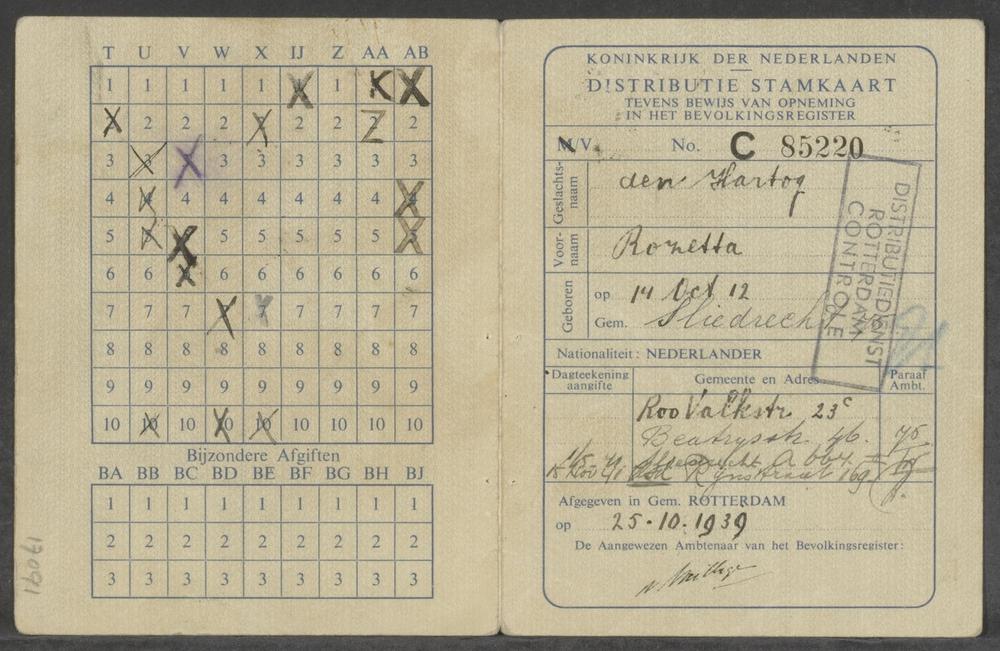 T U V W X IJ Z AA AB
1 1 1 1 1 1 1 K
2 2 2 2 2 2 2 2
3 3 3 3 3 3 3 3
4 4 4 4 4 4 4 4 4
5 5 5 5 5 5 5 5 5
6 6 6 6 6 6 6 6
7 7 7 7 7 7 7 7 7
8 8 8 8 8 8 8 8 8
9 9 9 9 9 9 9 9 9
10 10 10 10 10 10 10 10 10
Bijzondere Afgiften
BA BB BC BD BE BF BG BH BJ
1 1 1 1 1 1 1 1 1
2 2 2 2 2 2 2 2 2
3 3 3 3 3 3 3 3 3
17091
KONINKRIJK DER NEDERLANDEN
DISTRIBUTIE STAMKAART
TEVENS BEWIJS VAN OPNEMING
IN HET BEVOLKINGSREGISTER
M/V. No. C 85220
Geslachts-
naam
den Hartog
Voor-
naam
Rozetta
Geboren
op 14 Oct 12
Gem. Sliedrecht
DISTRIBUTIEDIENST
ROTTERDAM
CONTROLE
Nationaliteit: NEDERLANDER
Dagteekening
aangifte
Gemeente en Adres
Paraaf
Ambt.
Roo Valkstr 23c
Beatrysstr 46.
Rijnstraat 169
Afgegeven in Gem. ROTTERDAM
op 25-10-1939
De Aangewezen Ambtenaar van het Bevolkingsregister: